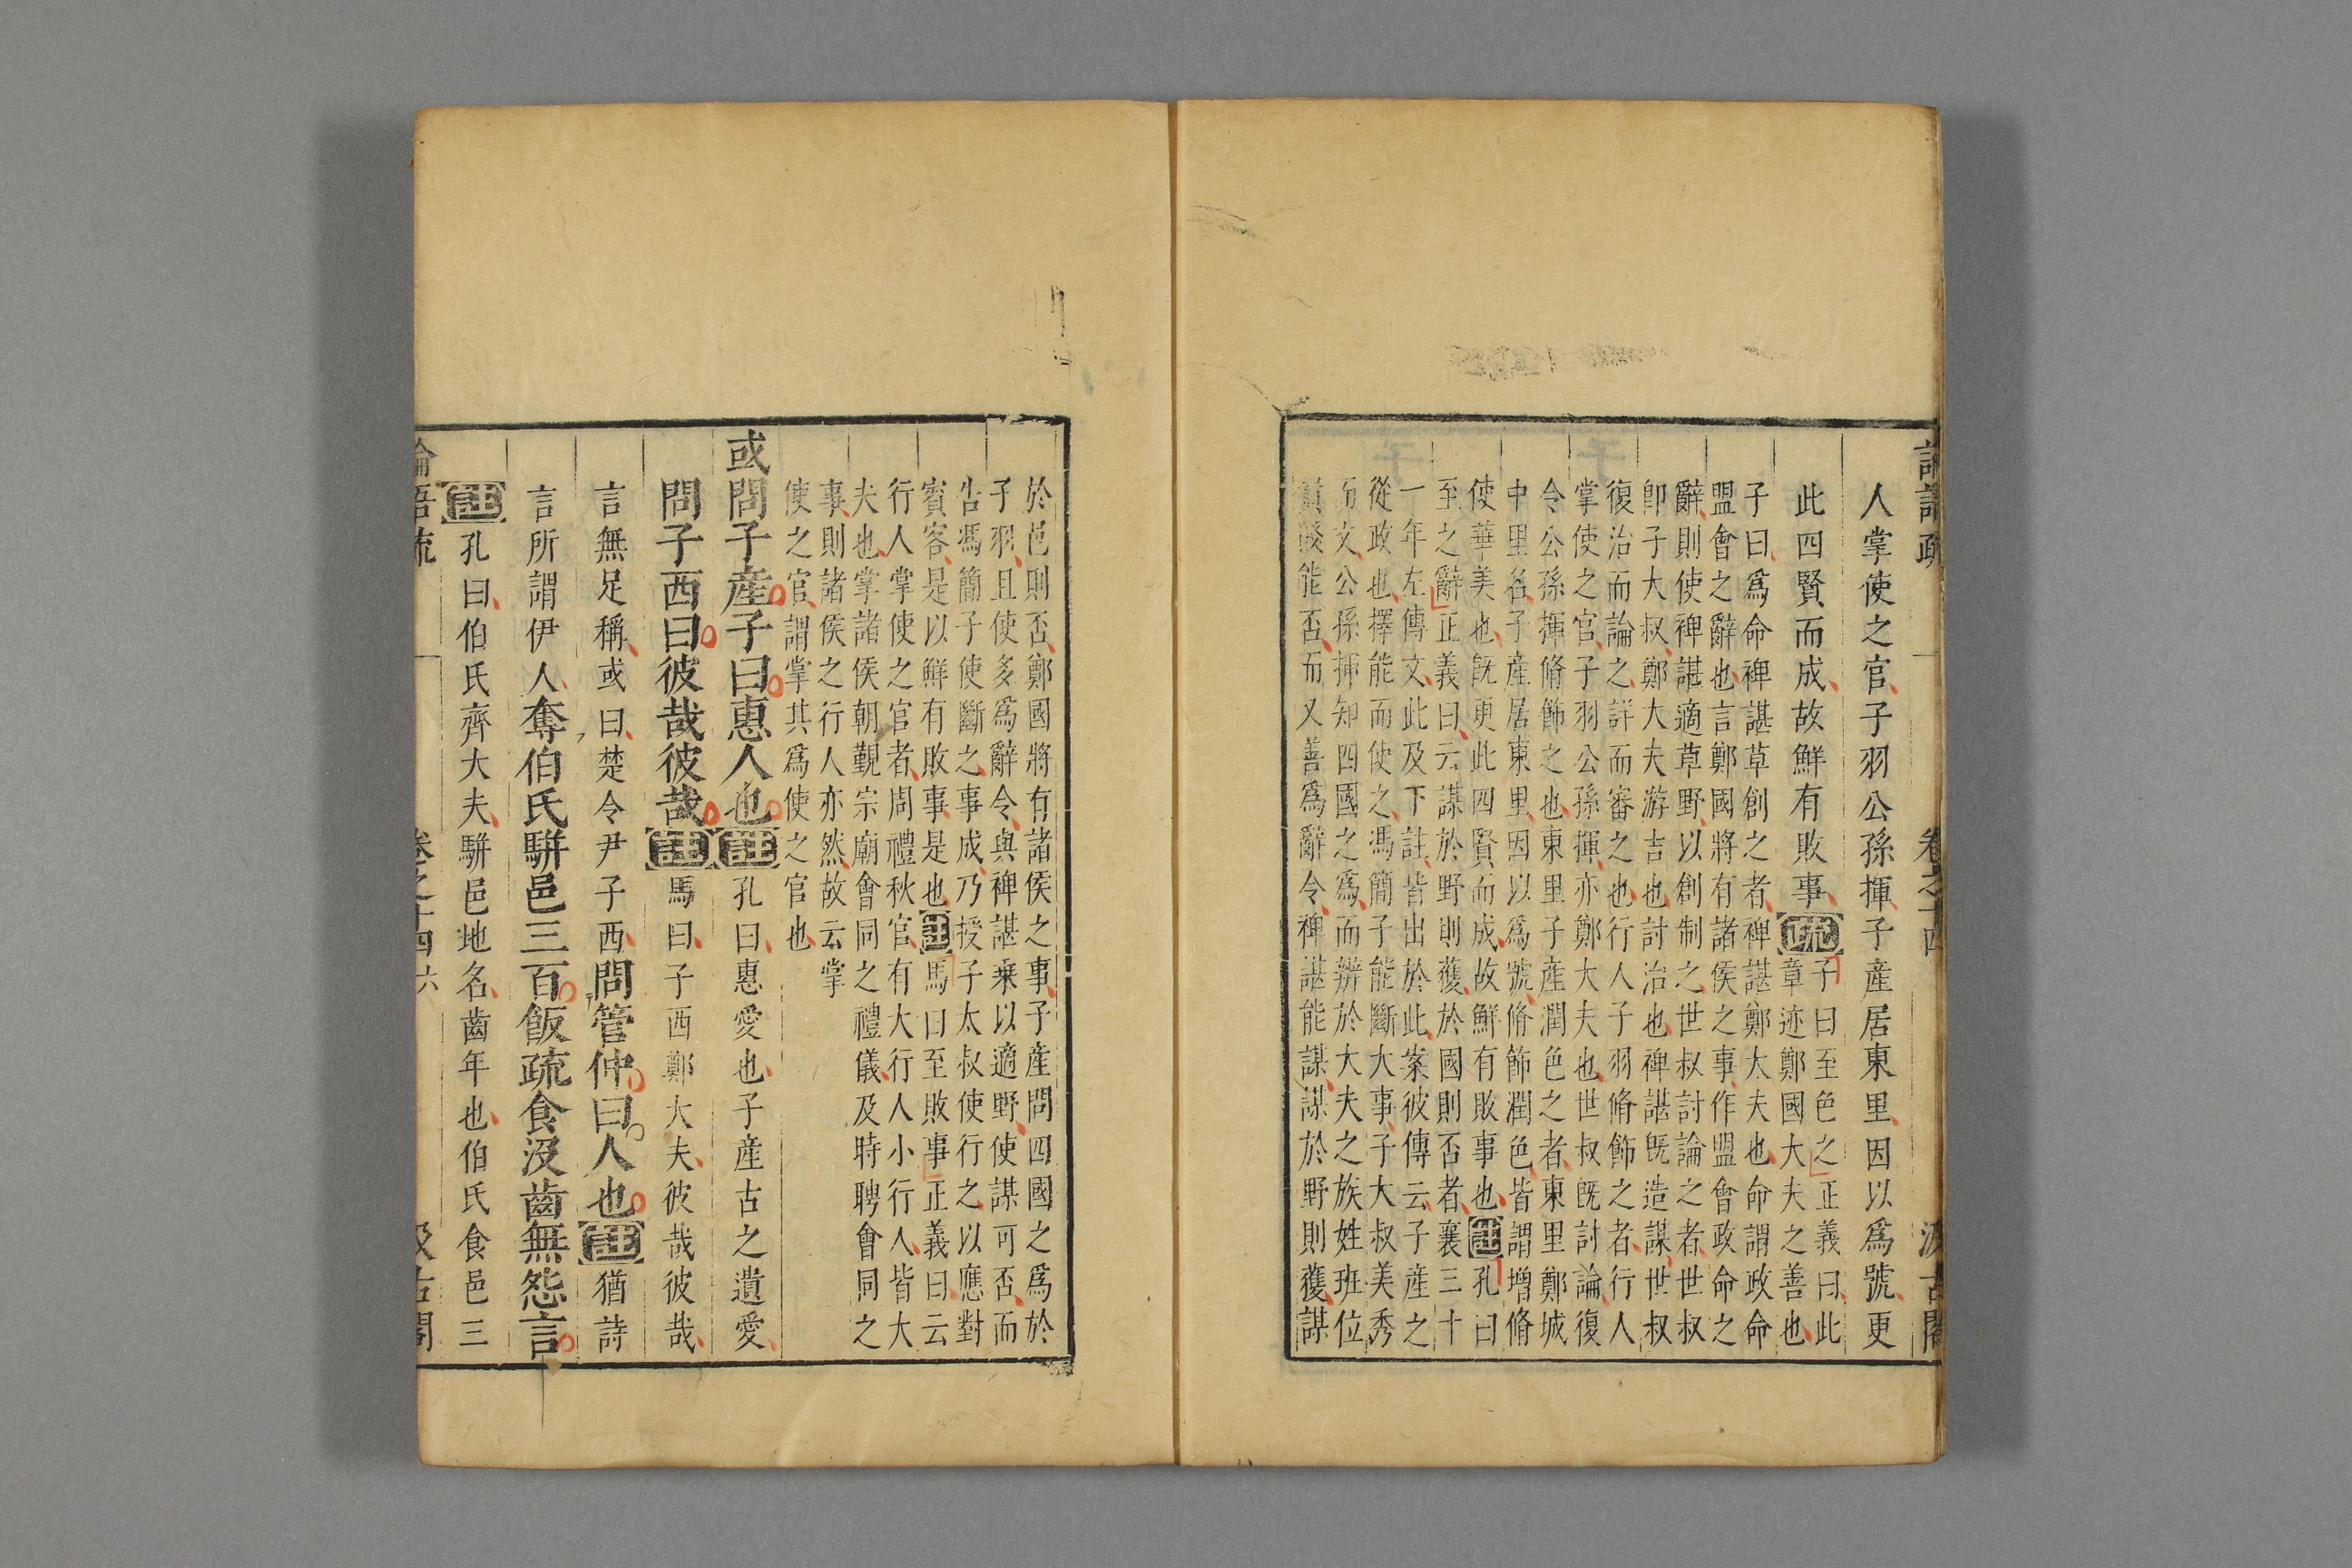 人掌使之官子羽公孫揮子產居東里因以爲號更
此四賢而成故鮮有敗事疏
子曰至色之正義曰此
章迹鄭國大夫之善也
子曰爲命裨諶草創之者裨諶鄭大夫也命謂政命
盟會之辭也言鄭國將有諸侯之事作盟會政命之
辭則使裨諶適草野以創制之世叔討論之者世叔
卽子大叔鄭大夫游吉也討治也裨諶旣造謀世叔
復治而論之詳而審之也行人子羽脩飾之者行人
掌使之官子羽公孫揮亦鄭大夫也世叔旣討論復
令公孫揮脩飾之也東里子產潤色之者東里鄭城
中里名子產居東里因以爲號脩飾潤色皆謂增脩
使華美也旣更此四賢而成故鮮有敗事也註孔曰
至之辭正義曰云謀於野則獲於國則否者襄三十
一年左傳文此及下註皆出於此案彼傳云子產之
從政也擇能而使之馮簡子能斷大事子大叔美秀
而文公孫揮知四國之爲而辨於大夫之族姓班位
貴賤能否而又善爲辭令裨諶能謀謀於野則獲謀
於邑則否鄭國將有諸侯之事子產問四國之爲於
子羽且使多爲辭令與裨諶乗以適野使謀可否而
告馮簡子使斷之事成乃授子太叔使行之以應對
賓客是以鮮有敗事是也註馬曰至敗事正義曰云
行人掌使之官者周禮秋官有大行人小行人皆大
夫也掌諸侯朝覲宗廟會同之禮儀及時聘會同之
事則諸侯之行人亦然故云掌
使之官謂掌其爲使之官也
或問子產子曰惠人也註孔曰惠愛也子產古之遺愛
問子西曰彼哉彼哉註馬曰子西鄭大夫彼哉彼哉
言無足稱或曰楚令尹子西問管仲曰人也註猶詩
言所謂伊人奪伯氏騈邑三百飯疏食沒齒無怨言
註孔曰伯氏齊大夫騈邑地名齒年也伯氏食邑三
論語疏 卷之十四 六 汲古閣